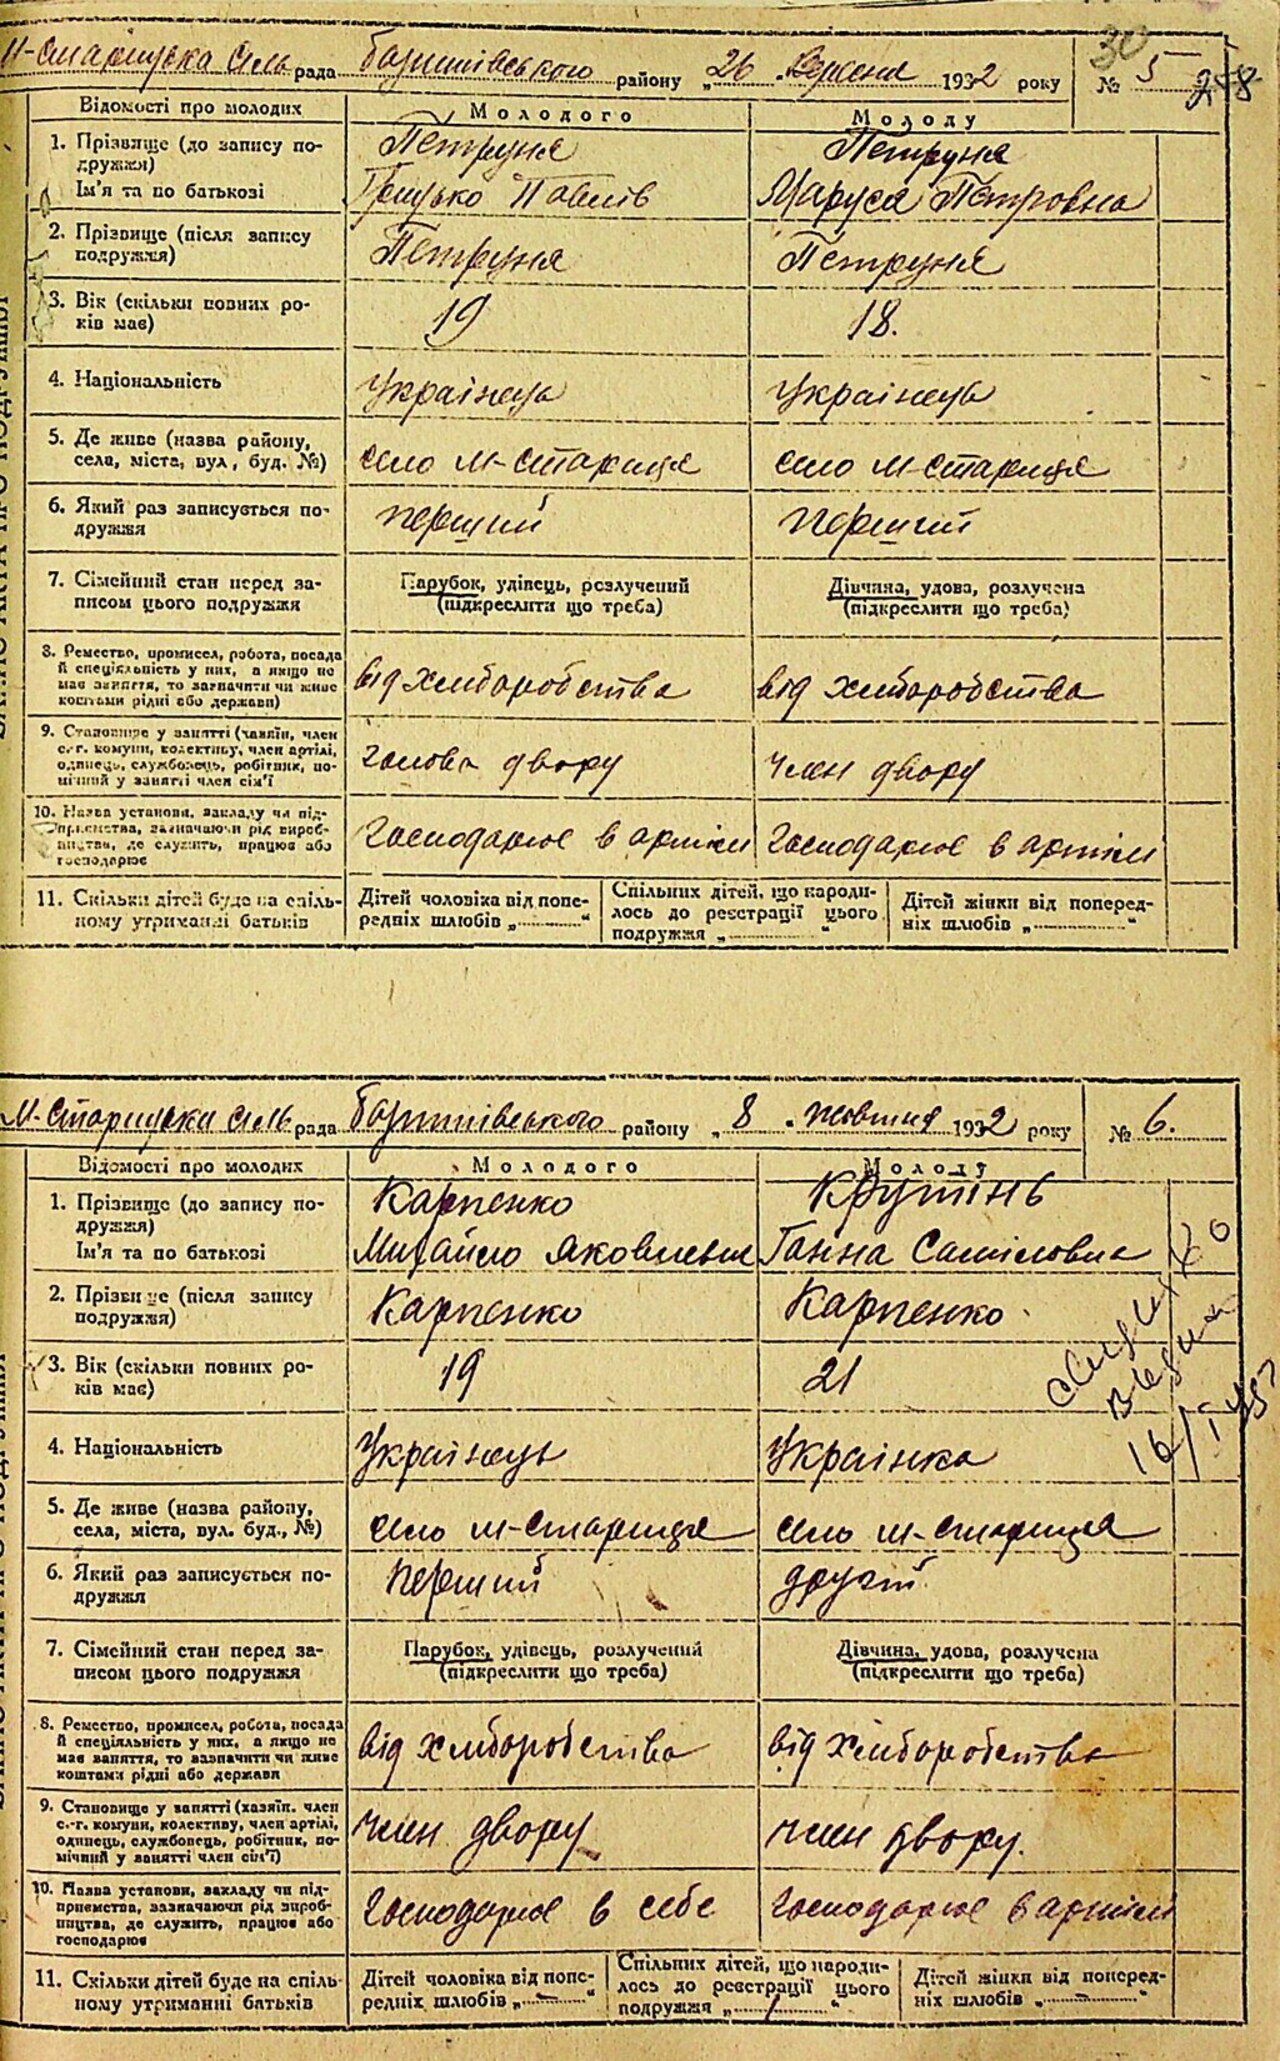 М-Старицька Сіль рада Баришівського району „ 26 „ Вересня 1932 року № 5
30
258
Відомості про молодих Молодого Молоду
1. Прізвище (до запису по-дружжя) Петруня Петруня
Ім'я та по батькові Грицько Павлів Маруся Петровна
2. Прізвище (після запису подружжя) Петруня Петруня
3. Вік (скільки повних ро-ків має) 19 18.
4. Національність Українець Українець
5. Де живе (назва району, села, міста, вул, буд. №) село М-Стариця село М-Стариця
6. Який раз записується по-дружжя перший перший
7. Сімейний стан перед за-писом цього подружжя Парубок, удівець, розлучений (підкреслити що треба) Дівчина, удова, розлучена (підкреслити що треба)
8. Ремество, промисел, робота, посада й спеціяльність у них, а якщо не має заняття, то зазначити чи живе коштами рідні або держави) від хліборобства від хліборобства
9. Становище у занятті (хазяїн, член с.-г. комуни, колективу, член артілі, одинець, службовець, робітник, по-мічний у занятті член сім'ї голова двору член двору
10. Назва установи, закладу чи під-приємства, зазначаючи рід вироб-ництва, де служить, працює або господарює Господарює в артілі Господарює в артілі
11. Скільки дітей буде на спіль-ному утриманні батьків Дітей чоловіка від попе-редніх шлюбів „ “ Спільних дітей, що народи-лось до реєстрації цього подружжя „ “ Дітей жінки від поперед-ніх шлюбів „ “
М-Старицька Сіль рада Баришівського району „ 8 „ жовтня 1932 року № 6.
Відомості про молодих Молодого Молоду
1. Прізвище (до запису по-дружжя) Карпенко Крутінь
Ім'я та по батькові Михайло Яковлевич Ганна Саміловна
2. Прізвище (після запису подружжя) Карпенко Карпенко
3. Вік (скільки повних ро-ків має) 19 21
4. Національність Українець Українка
5. Де живе (назва району, села, міста, вул. буд., №) село М-Стариця село М-Стариця
6. Який раз записується по-дружжя перший другий
7. Сімейний стан перед за-писом цього подружжя Парубок, удівець, розлучений (підкреслити що треба) Дівчина, удова, розлучена (підкреслити що треба)
8. Ремество, промисел, робота, посада й спеціяльність у них, а якщо не має заняття, то зазначити чи живе коштами рідні або держави від хліборобства від хліборобства
9. Становище у занятті (хазяїн. член с.-г. комуни, колективу, член артілі, одинець, службовець, робітник, по-мічний у занятті член сім'ї) член двору член двору.
10. Назва установи, закладу чи під-приємства, зазначаючи рід вироб-ництва, де служить, працює або господарює Господарює в себе Господарює в артілі
11. Скільки дітей буде на спіль-ному утриманні батьків Дітей чоловіка від попе-редніх шлюбів „ – “ Спільних дітей, що народи-лось до реєстрації цього подружжя „ / “ Дітей жінки від поперед-ніх шлюбів „ – “